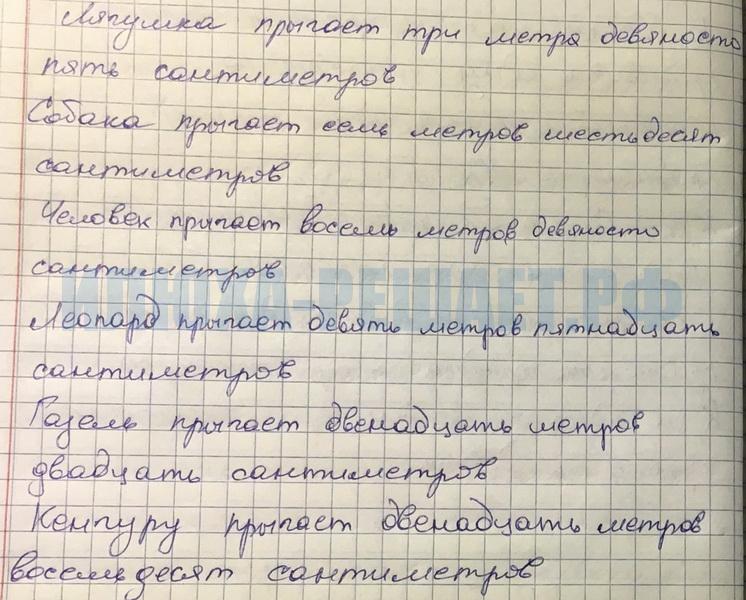 Лягушка прыгает три метра девяносто
пять сантиметров
Собака прыгает семь метров шестьдесят
сантиметров
Человек прыгает восемь метров девяносто
сантиметров
ИЛЮХА-РЕШАЕТ.РФ
Леопард прыгает девять метров пятнадцать
сантиметров
Газель прыгает двенадцать метров
двадцать сантиметров
Кенгуру прыгает двенадцать метров
восемьдесят сантиметров